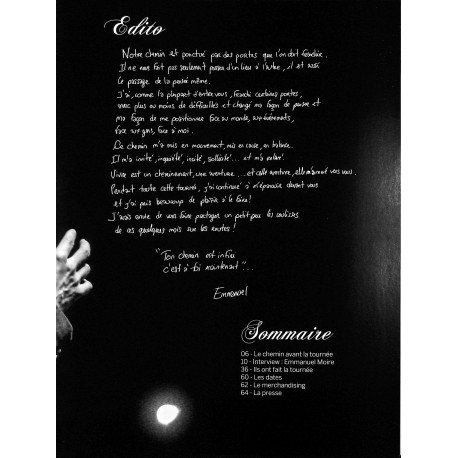 Edito
Notre chemin est ponctué par des portes que l'on doit franchir.
Il ne nous fait pas seulement passer d'un lieu à l'autre, il est aussi
le passage de la pensée même.
J'ai, comme la plupart d'entre vous, franchi certaines portes,
avec plus ou moins de difficultés et changé ma façon de penser et
ma façon de me positionner face au monde, aux événements,
face aux gens, face à moi.
Ce chemin m'a mis en mouvement, mis en cause, en balance.
Il m'a invité, inquiété, incité, sollicité... et m'a relevé.
Vivre est un cheminement, une aventure... et cette aventure, elle m'amène vers vous.
Pendant toute cette tournée, j'ai continué à m'épanouir devant vous
et j'ai pris beaucoup de plaisir à le faire!
J'avais envie de vous faire partager un petit peu les coulisses
de ces quelques mois sur les routes!
"Ton chemin est infini
c'est à toi maintenant"...
Emmanuel
Sommaire
06 - Le chemin avant la tournée
10 - Interview : Emmanuel Moire
36 - Ils ont fait la tournée
60 - Les dates
62 - Le merchandising
64 - La presse